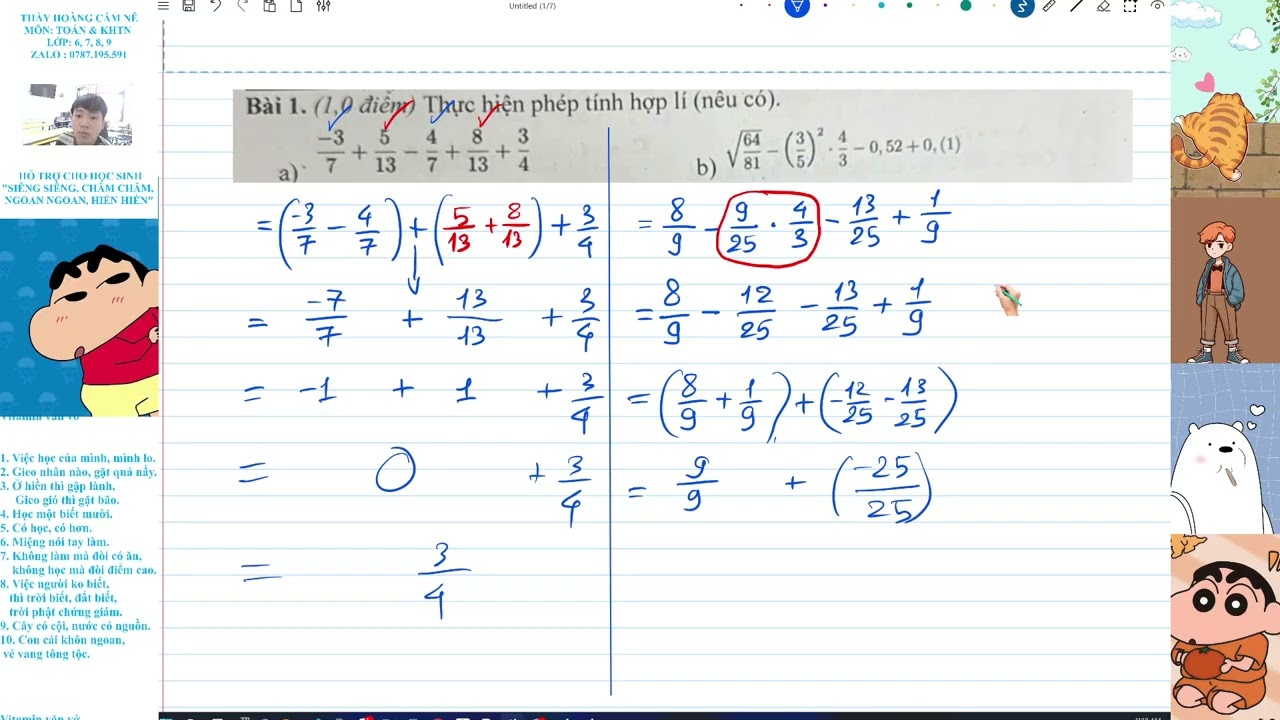 Untitled (1/7)
THẦY HOÀNG CẨM NÊ
MÔN: TOÁN & KHTN
LỚP: 6, 7, 8, 9
ZALO : 0787.195.591
HỖ TRỢ CHO HỌC SINH
"SIÊNG SIÊNG, CHĂM CHĂM,
NGOAN NGOAN, HIỀN HIỀN"
1. Việc học của mình, mình lo.
2. Gieo nhân nào, gặt quả nấy.
3. Ở hiền thì gặp lành,
Gieo gió thì gặt bão.
4. Học một biết mười.
5. Có học, có hơn.
6. Miệng nói tay làm.
7. Không làm mà đòi có ăn,
không học mà đòi điểm cao.
8. Việc người ko biết,
thì trời biết, đất biết,
trời phật chứng giám.
9. Cây có cội, nước có nguồn.
10. Con cái khôn ngoan,
vẻ vang tông tộc.
Vitamin văn vở
Bài 1. (1,0 điểm) Thực hiện phép tính hợp lí (nêu có).
a) -3/7 + 5/13 − 4/7 + 8/13 + 3/4
= (-3/7 − 4/7) + (5/13 + 8/13) + 3/4
= -7/7 + 13/13 + 3/4
= -1 + 1 + 3/4
= 0 + 3/4
= 3/4
b) √(64/81) − (3/5)² · 4/3 − 0,52 + 0,(1)
= 8/9 − 9/25 · 4/3 − 13/25 + 1/9
= 8/9 − 12/25 − 13/25 + 1/9
= (8/9 + 1/9) + (-12/25 − 13/25)
= 9/9 + (-25/25)